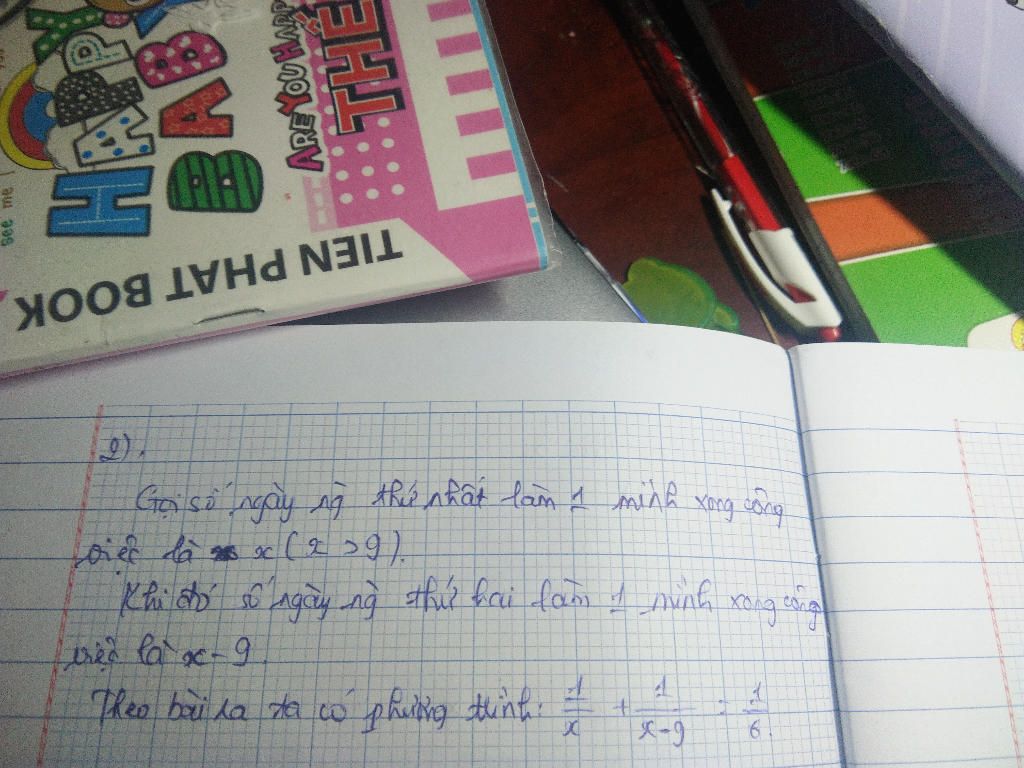 See me
HAPPY
BABY
ARE YOU HAPP
THẾ
TIEN PHAT BOOK
2).
Gọi số ngày ng thứ nhất làm 1 mình xong công
việc là x (x > 9).
Khi đó số ngày ng thứ hai làm 1 mình xong công
việc là x - 9.
Theo bài ra ta có phương trình: 1/x + 1/(x-9) = 1/6.